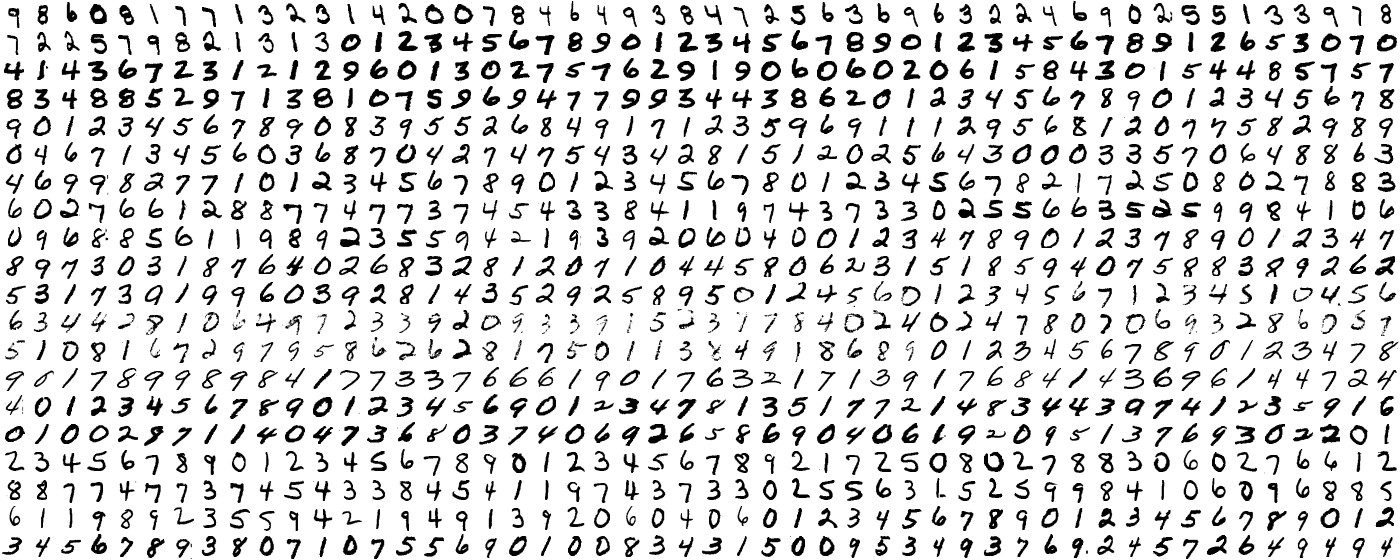 9 8 6 0 8 1 7 7 1 3 2 3 1 4 2 0 0 7 8 4 6 4 9 3 8 4 7 2 5 6 3 6 9 6 3 2 2 4 6 9 0 2 5 5 1 3 3 9 7 8
7 2 2 5 7 9 8 2 1 3 1 3 0 1 2 3 4 5 6 7 8 9 0 1 2 3 4 5 6 7 8 9 0 1 2 3 4 5 6 7 8 9 1 2 6 5 3 0 7 0
4 1 4 3 6 7 2 3 1 2 1 2 9 6 0 1 3 0 2 7 5 7 6 2 9 1 9 0 6 0 6 0 2 0 6 1 5 8 4 3 0 1 5 4 4 8 5 7 5 7
8 3 4 8 8 5 2 9 7 1 3 8 1 0 7 5 9 6 9 4 7 7 9 9 3 4 4 3 8 6 2 0 1 2 3 4 5 6 7 8 9 0 1 2 3 4 5 6 7 8
9 0 1 2 3 4 5 6 7 8 9 0 8 3 9 5 5 2 6 8 4 9 1 7 1 2 3 5 9 6 9 1 1 1 2 9 5 6 8 1 2 0 7 7 5 8 2 9 8 9
0 4 6 7 1 3 4 5 6 0 3 6 8 7 0 4 2 7 4 7 5 4 3 4 2 8 1 5 1 2 0 2 5 6 4 3 0 0 0 3 3 5 7 0 6 4 8 8 6 3
4 6 9 9 8 2 7 7 1 0 1 2 3 4 5 6 7 8 9 0 1 2 3 4 5 6 7 8 0 1 2 3 4 5 6 7 8 2 1 7 2 5 0 8 0 2 7 8 8 3
6 0 2 7 6 6 1 2 8 8 7 7 4 7 7 3 7 4 5 4 3 3 8 4 1 1 9 7 4 3 7 3 3 0 2 5 5 6 6 3 5 2 5 9 9 8 4 1 0 6
0 9 6 8 8 5 6 1 1 9 8 9 2 3 5 5 9 4 2 1 9 3 9 2 0 6 0 4 0 0 1 2 3 4 7 8 9 0 1 2 3 7 8 9 0 1 2 3 4 7
8 9 7 3 0 3 1 8 7 6 4 0 2 6 8 3 2 8 1 2 0 7 1 0 4 4 5 8 0 6 2 3 1 5 1 8 5 9 4 0 7 5 8 8 3 8 9 2 6 2
5 3 1 7 3 9 1 9 9 6 0 3 9 2 8 1 4 3 5 2 9 2 5 8 9 5 0 1 2 4 5 6 0 1 2 3 4 5 6 7 1 2 3 4 5 1 0 4 5 6
6 3 4 4 2 8 1 0 6 4 9 7 2 3 3 9 2 0 9 3 3 9 1 5 2 3 7 7 8 4 0 2 4 0 2 4 7 8 0 7 0 6 9 3 2 8 6 0 5 7
5 1 0 8 1 6 7 2 9 7 9 5 8 6 2 6 2 8 1 7 5 0 1 1 3 8 4 9 1 8 6 8 9 0 1 2 3 4 5 6 7 8 9 0 1 2 3 4 7 8
9 0 1 7 8 9 9 8 9 8 4 1 7 7 3 3 7 6 6 6 1 9 0 1 7 6 3 2 1 7 1 3 9 1 7 6 8 4 1 4 3 6 9 6 1 4 4 7 2 4
4 0 1 2 3 4 5 6 7 8 9 0 1 2 3 4 5 6 9 0 1 2 3 4 7 8 1 3 5 1 7 7 2 1 4 8 3 4 4 3 9 7 4 1 2 3 5 9 1 6
0 1 0 0 2 8 7 1 1 4 0 4 7 3 6 8 0 3 7 4 0 6 9 2 6 5 8 6 9 0 4 0 6 1 9 2 0 9 5 1 3 7 6 9 3 0 2 2 0 1
2 3 4 5 6 7 8 9 0 1 2 3 4 5 6 7 8 9 0 1 2 3 4 5 6 7 8 9 2 1 7 2 5 0 8 0 2 7 8 8 3 0 6 0 2 7 6 6 1 2
8 8 7 7 4 7 7 3 7 4 5 4 3 3 8 4 5 4 1 1 9 7 4 3 7 3 3 0 2 5 5 6 3 1 5 2 5 9 9 8 4 1 0 6 0 9 6 8 8 5
6 1 1 9 8 9 2 3 5 5 9 4 2 1 9 4 9 1 3 9 2 0 6 0 4 0 6 0 1 2 3 4 5 6 7 8 9 0 1 2 3 4 5 6 7 8 9 0 1 2
3 4 5 6 7 8 9 3 8 0 7 1 0 7 5 5 6 9 0 1 0 0 8 3 4 3 1 5 0 0 9 5 3 4 9 3 7 6 9 2 4 5 7 2 6 4 9 4 9 4